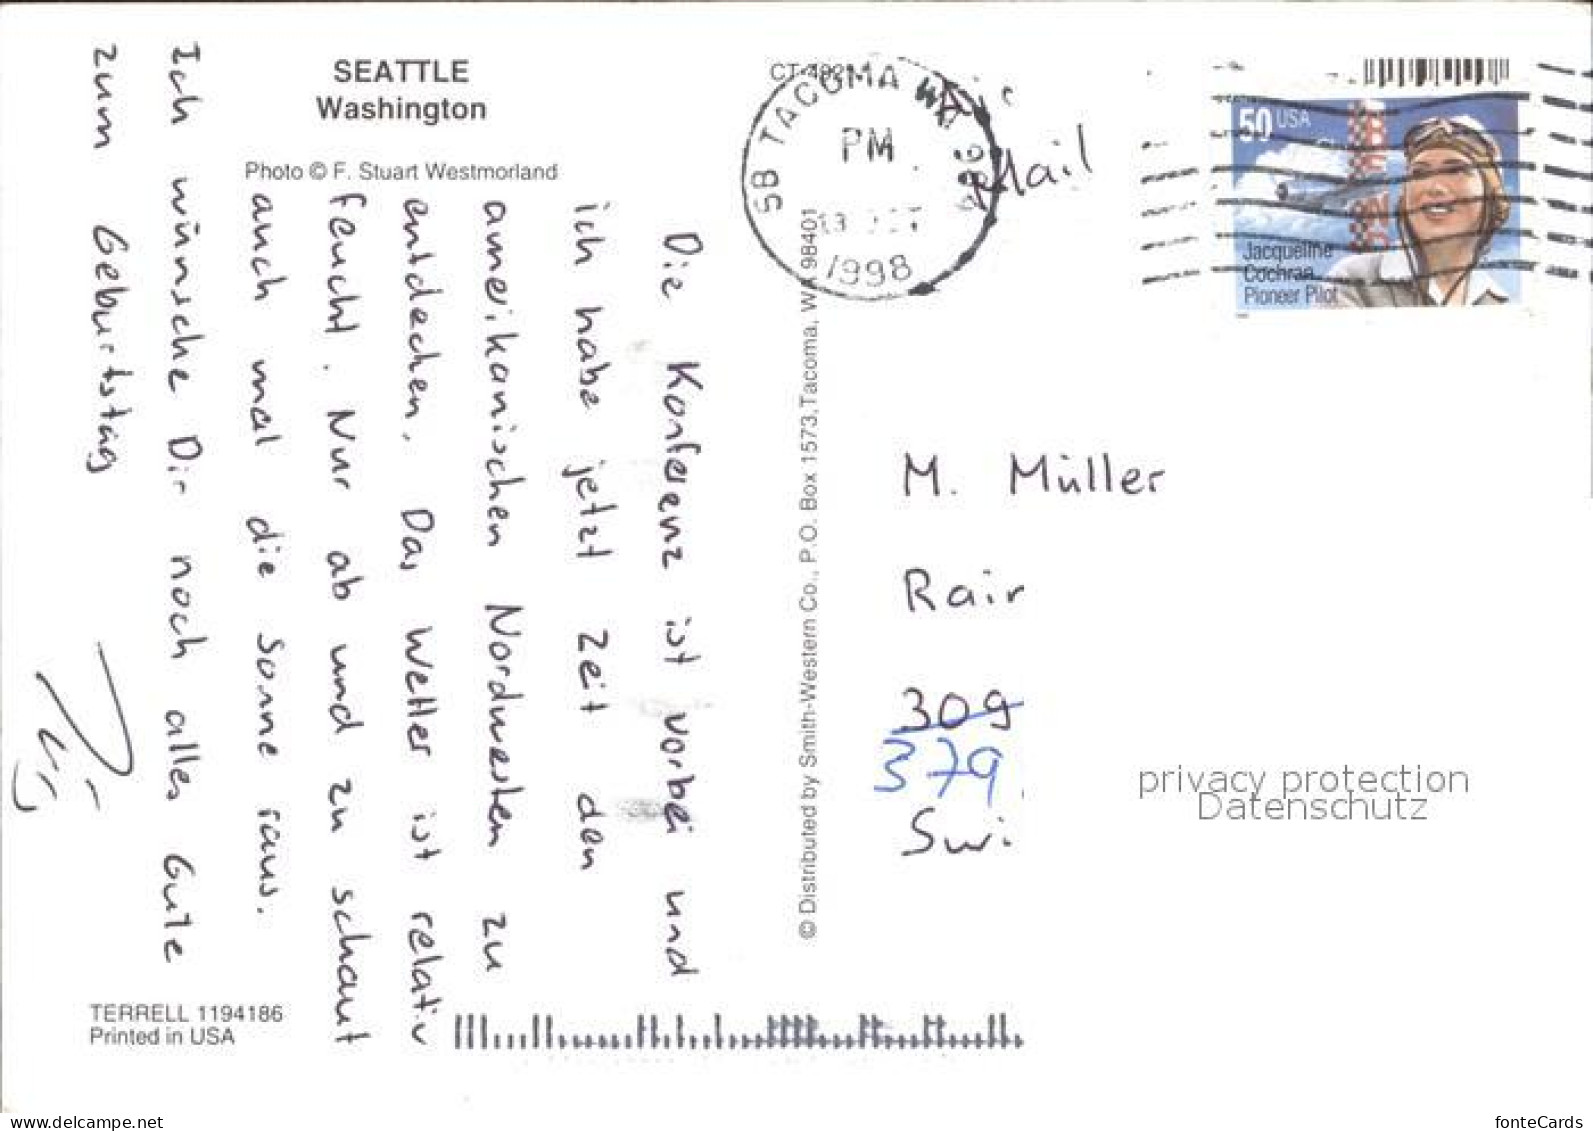 SEATTLE
Washington
Photo © F. Stuart Westmorland
Die Konferenz ist vorbei und
ich habe jetzt Zeit den
amerikanischen Nordwesten zu
entdecken. Das Wetter ist relativ
feucht. Nur ab und zu schaut
auch mal die Sonne raus.
Ich wünsche Dir noch alles Gute
zum Geburtstag
TERRELL 1194186
Printed in USA
© Distributed by Smith-Western Co., P.O. Box 1573, Tacoma, WA 98401
SB TACOMA WA
PM
1998
Mail
50 USA
Jacqueline
Cochran
Pioneer Pilot
M. Müller
Rair
309
379
Swi
privacy protection
Datenschutz
www.delcampe.net
fonteCards